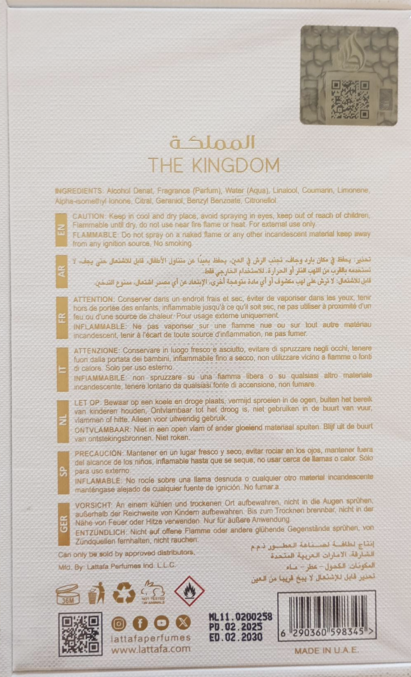 المملكة
THE KINGDOM
INGREDIENTS: Alcohol Denat, Fragrance (Parfum), Water (Aqua), Linalool, Coumarin, Limonene,
Alpha-isomethyl ionone, Citral, Geraniol, Benzyl Benzoate, Citronellol.
EN
CAUTION: Keep in cool and dry place, avoid spraying in eyes, keep out of reach of children,
Flammable until dry, do not use near fire flame or heat. For external use only.
FLAMMABLE: Do not spray on a naked flame or any other incandescent material keep away
from any ignition source. No smoking.
AR
تحذير: يحفظ في مكان بارد وجاف، تجنب الرش في العين، يحفظ بعيداً عن متناول الأطفال، قابل للاشتعال حتى يجف، لا
تستخدمه بالقرب من اللهب النار أو الحرارة. للاستخدام الخارجي فقط.
قابل للاشتعال: لا ترش على لهب مكشوف أو أي مادة متوهجة أخرى، الإبتعاد عن أي مصدر اشتعال. ممنوع التدخين.
FR
ATTENTION: Conserver dans un endroit frais et sec, éviter de vaporiser dans les yeux, tenir
hors de portée des enfants, inflammable jusqu'à ce qu'il soit sec, ne pas utiliser à proximité d'un
feu ou d'une source de chaleur. Pour usage externe uniquement.
INFLAMMABLE: Ne pas vaporiser sur une flamme nue ou sur tout autre matériau
incandescent, tenir à l'écart de toute source d'inflammation, ne pas fumer.
IT
ATTENZIONE: Conservare in luogo fresco e asciutto, evitare di spruzzare negli occhi, tenere
fuori dalla portata dei bambini, infiammabile fino a secco, non utilizzare vicino a fiamme o fonti
di calore. Solo per uso esterno.
INFIAMMABILE: non spruzzare su una fiamma libera o su qualsiasi altro materiale
incandescente, tenere lontano da qualsiasi fonte di accensione, non fumare.
NL
LET OP: Bewaar op een koele en droge plaats, vermijd sproeien in de ogen, buiten het bereik
van kinderen houden, Ontvlambaar tot het droog is, niet gebruiken in de buurt van vuur,
vlammen of hitte. Alleen voor uitwendig gebruik.
ONTVLAMBAAR: Niet in een open vlam of ander gloeiend materiaal spuiten. Blijf uit de buurt
van ontstekingsbronnen. Niet roken.
SP
PRECAUCIÓN: Mantener en un lugar fresco y seco, evitar rociar en los ojos, mantener fuera
del alcance de los niños, inflamable hasta que se seque, no usar cerca de llamas o calor. Solo
para uso externo.
INFLAMABLE: No rocíe sobre una llama desnuda o cualquier otro material incandescente
manténgase alejado de cualquier fuente de ignición. No fumar.
GER
VORSICHT: An einem kühlen und trockenen Ort aufbewahren, nicht in die Augen sprühen,
außerhalb der Reichweite von Kindern aufbewahren. Bis zum Trocknen brennbar, nicht in der
Nähe von Feuer oder Hitze verwenden. Nur für äußere Anwendung.
ENTZÜNDLICH: Nicht auf offene Flamme oder andere glühende Gegenstände sprühen, von
Zündquellen fernhalten, nicht rauchen.
Can only be sold by approved distributors,
Mfd. By: Lattafa Perfumes Ind. L.L.C.
إنتاج لطافة لصناعة العطور ذ.م.م
الشارقة، الامارات العربية المتحدة
المكونات: الكحول - عطر - ماء
تحذير: قابل للاشتعال لا يبخ قريبا من العين
36M
lattafaperfumes
www.lattafa.com
ML11.0200258
PD.02.2025
ED.02.2030
6 290360 598345
MADE IN U.A.E.